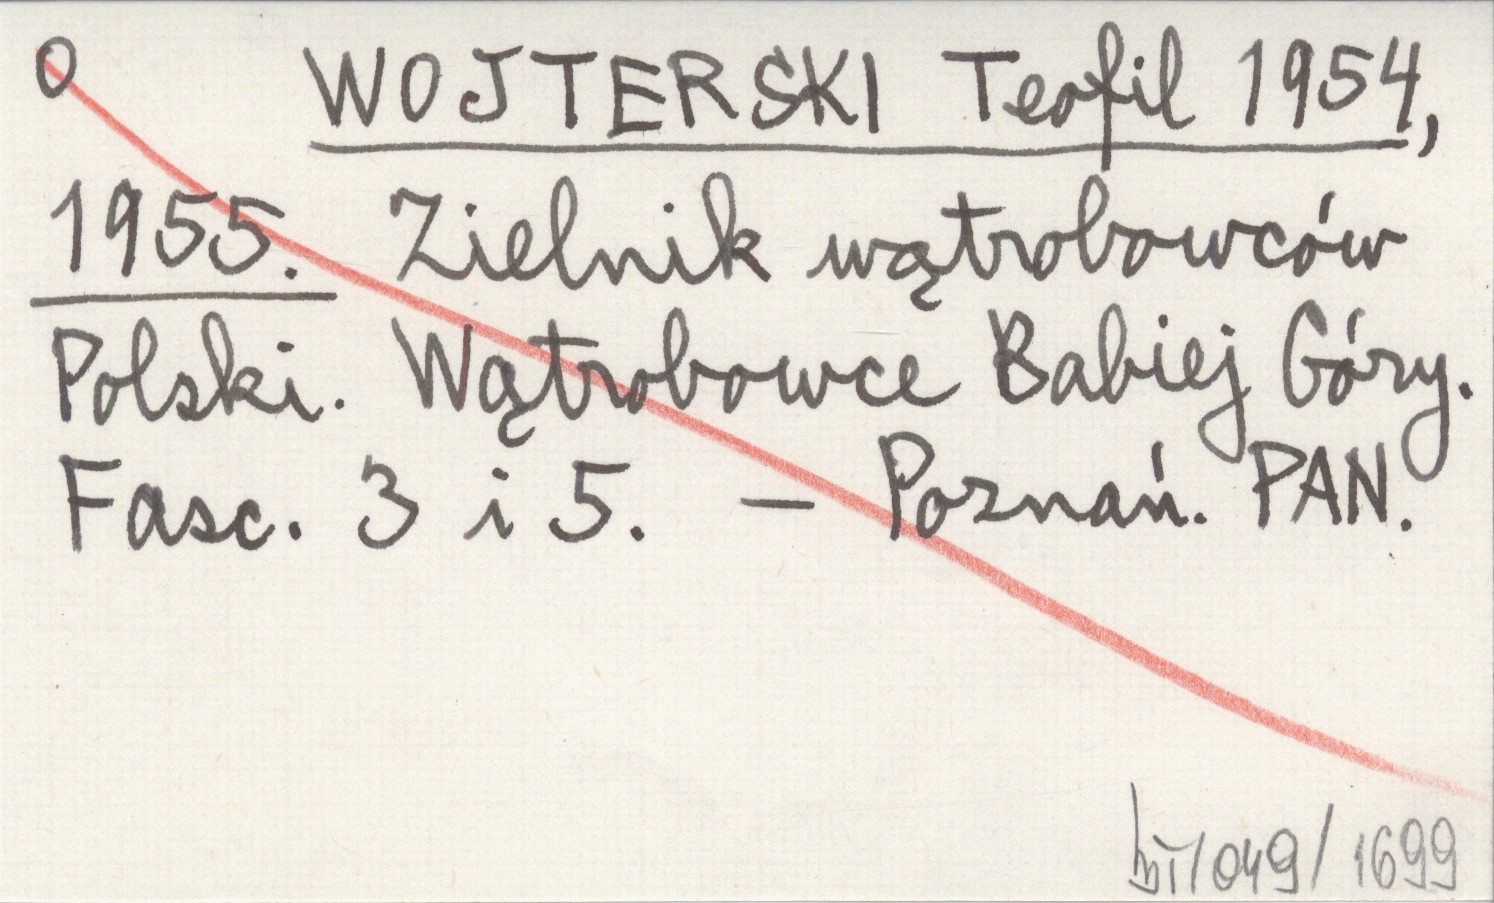 O WOJTERSKI Teofil 1954,
1955. Zielnik wątrobowców
Polski. Wątrobowce Babiej Góry.
Fasc. 3 i 5. — Poznań. PAN.
/049/1699